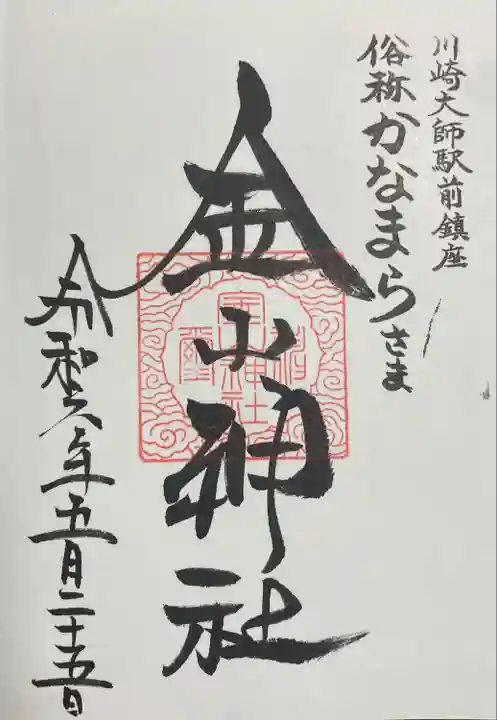 川崎大師駅前鎮座
俗称かなまらさま
金山神社
令和六年五月二十五日